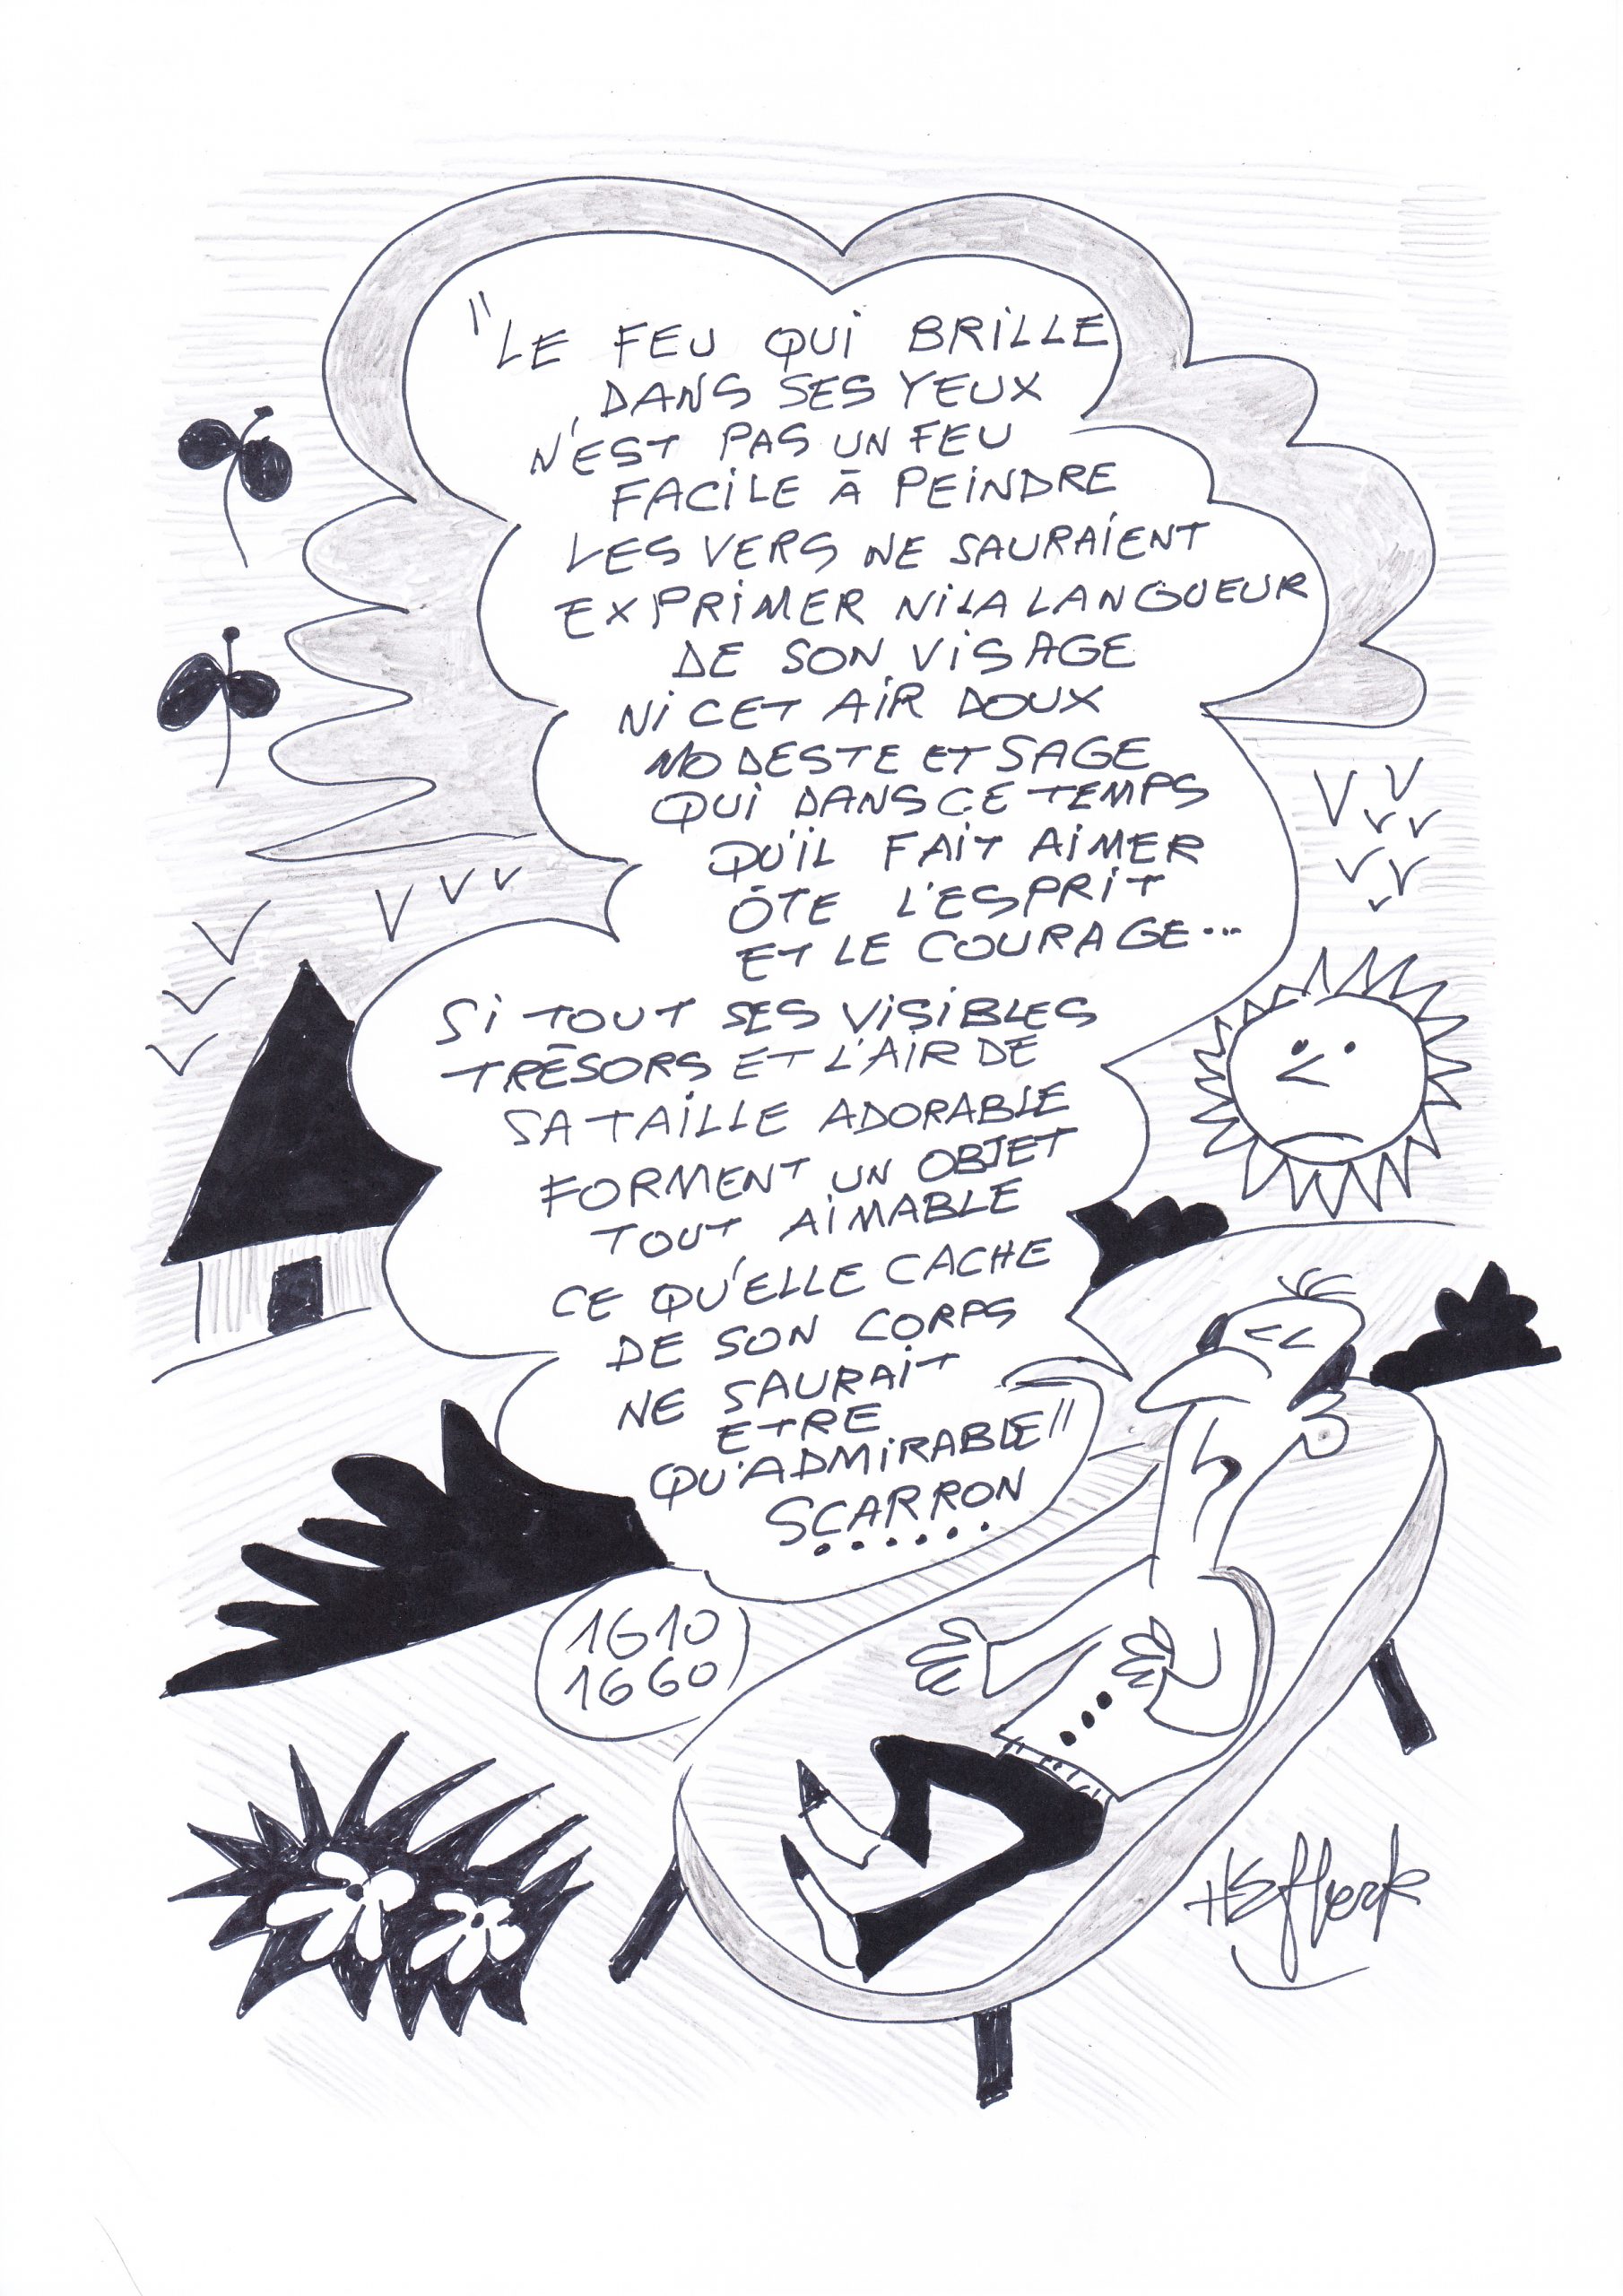 "LE FEU QUI BRILLE
DANS SES YEUX
N'EST PAS UN FEU
FACILE À PEINDRE
LES VERS NE SAURAIENT
EXPRIMER NI LA LANGUEUR
DE SON VISAGE
NI CET AIR DOUX
MODESTE ET SAGE
QUI DANS CE TEMPS
QU'IL FAIT AIMER
ÔTE L'ESPRIT
ET LE COURAGE...
SI TOUT SES VISIBLES
TRÉSORS ET L'AIR DE
SA TAILLE ADORABLE
FORMENT UN OBJET
TOUT AIMABLE
CE QU'ELLE CACHE
DE SON CORPS
NE SAURAIT
ETRE
QU'ADMIRABLE"
SCARRON
......
1610
1660